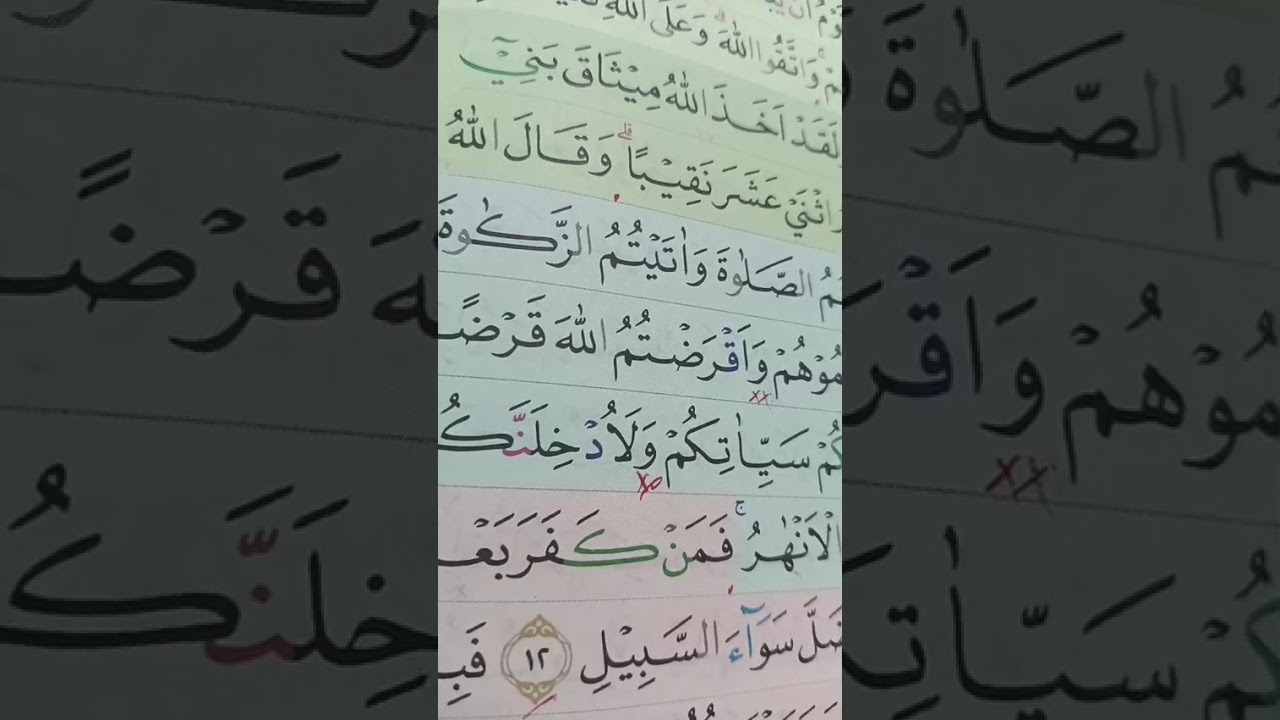 وَاتَّقُوا اللّٰهَ وَعَلَى اللّٰهِ
لَقَدْ اَخَذَ اللّٰهُ مِيْثَاقَ بَنِيْٓ
اثْنَيْ عَشَرَ نَقِيْبًاۗ وَقَالَ اللّٰهُ
الصَّلٰوةَ وَاٰتَيْتُمُ الزَّكٰوةَ
مُوْهُمْ وَاَقْرَضْتُمُ اللّٰهَ قَرْضً
كُمْ سَيِّاٰتِكُمْ وَلَاُدْخِلَنَّكُ
الْاَنْهٰرُۚ فَمَنْ كَفَرَ بَعْ
ضَلَّ سَوَاۤءَ السَّبِيْلِ ١٢ فَبِ